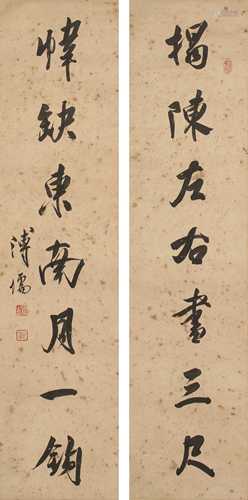 榻陳左右書三尺
幃缺東南月一鉤
溥儒